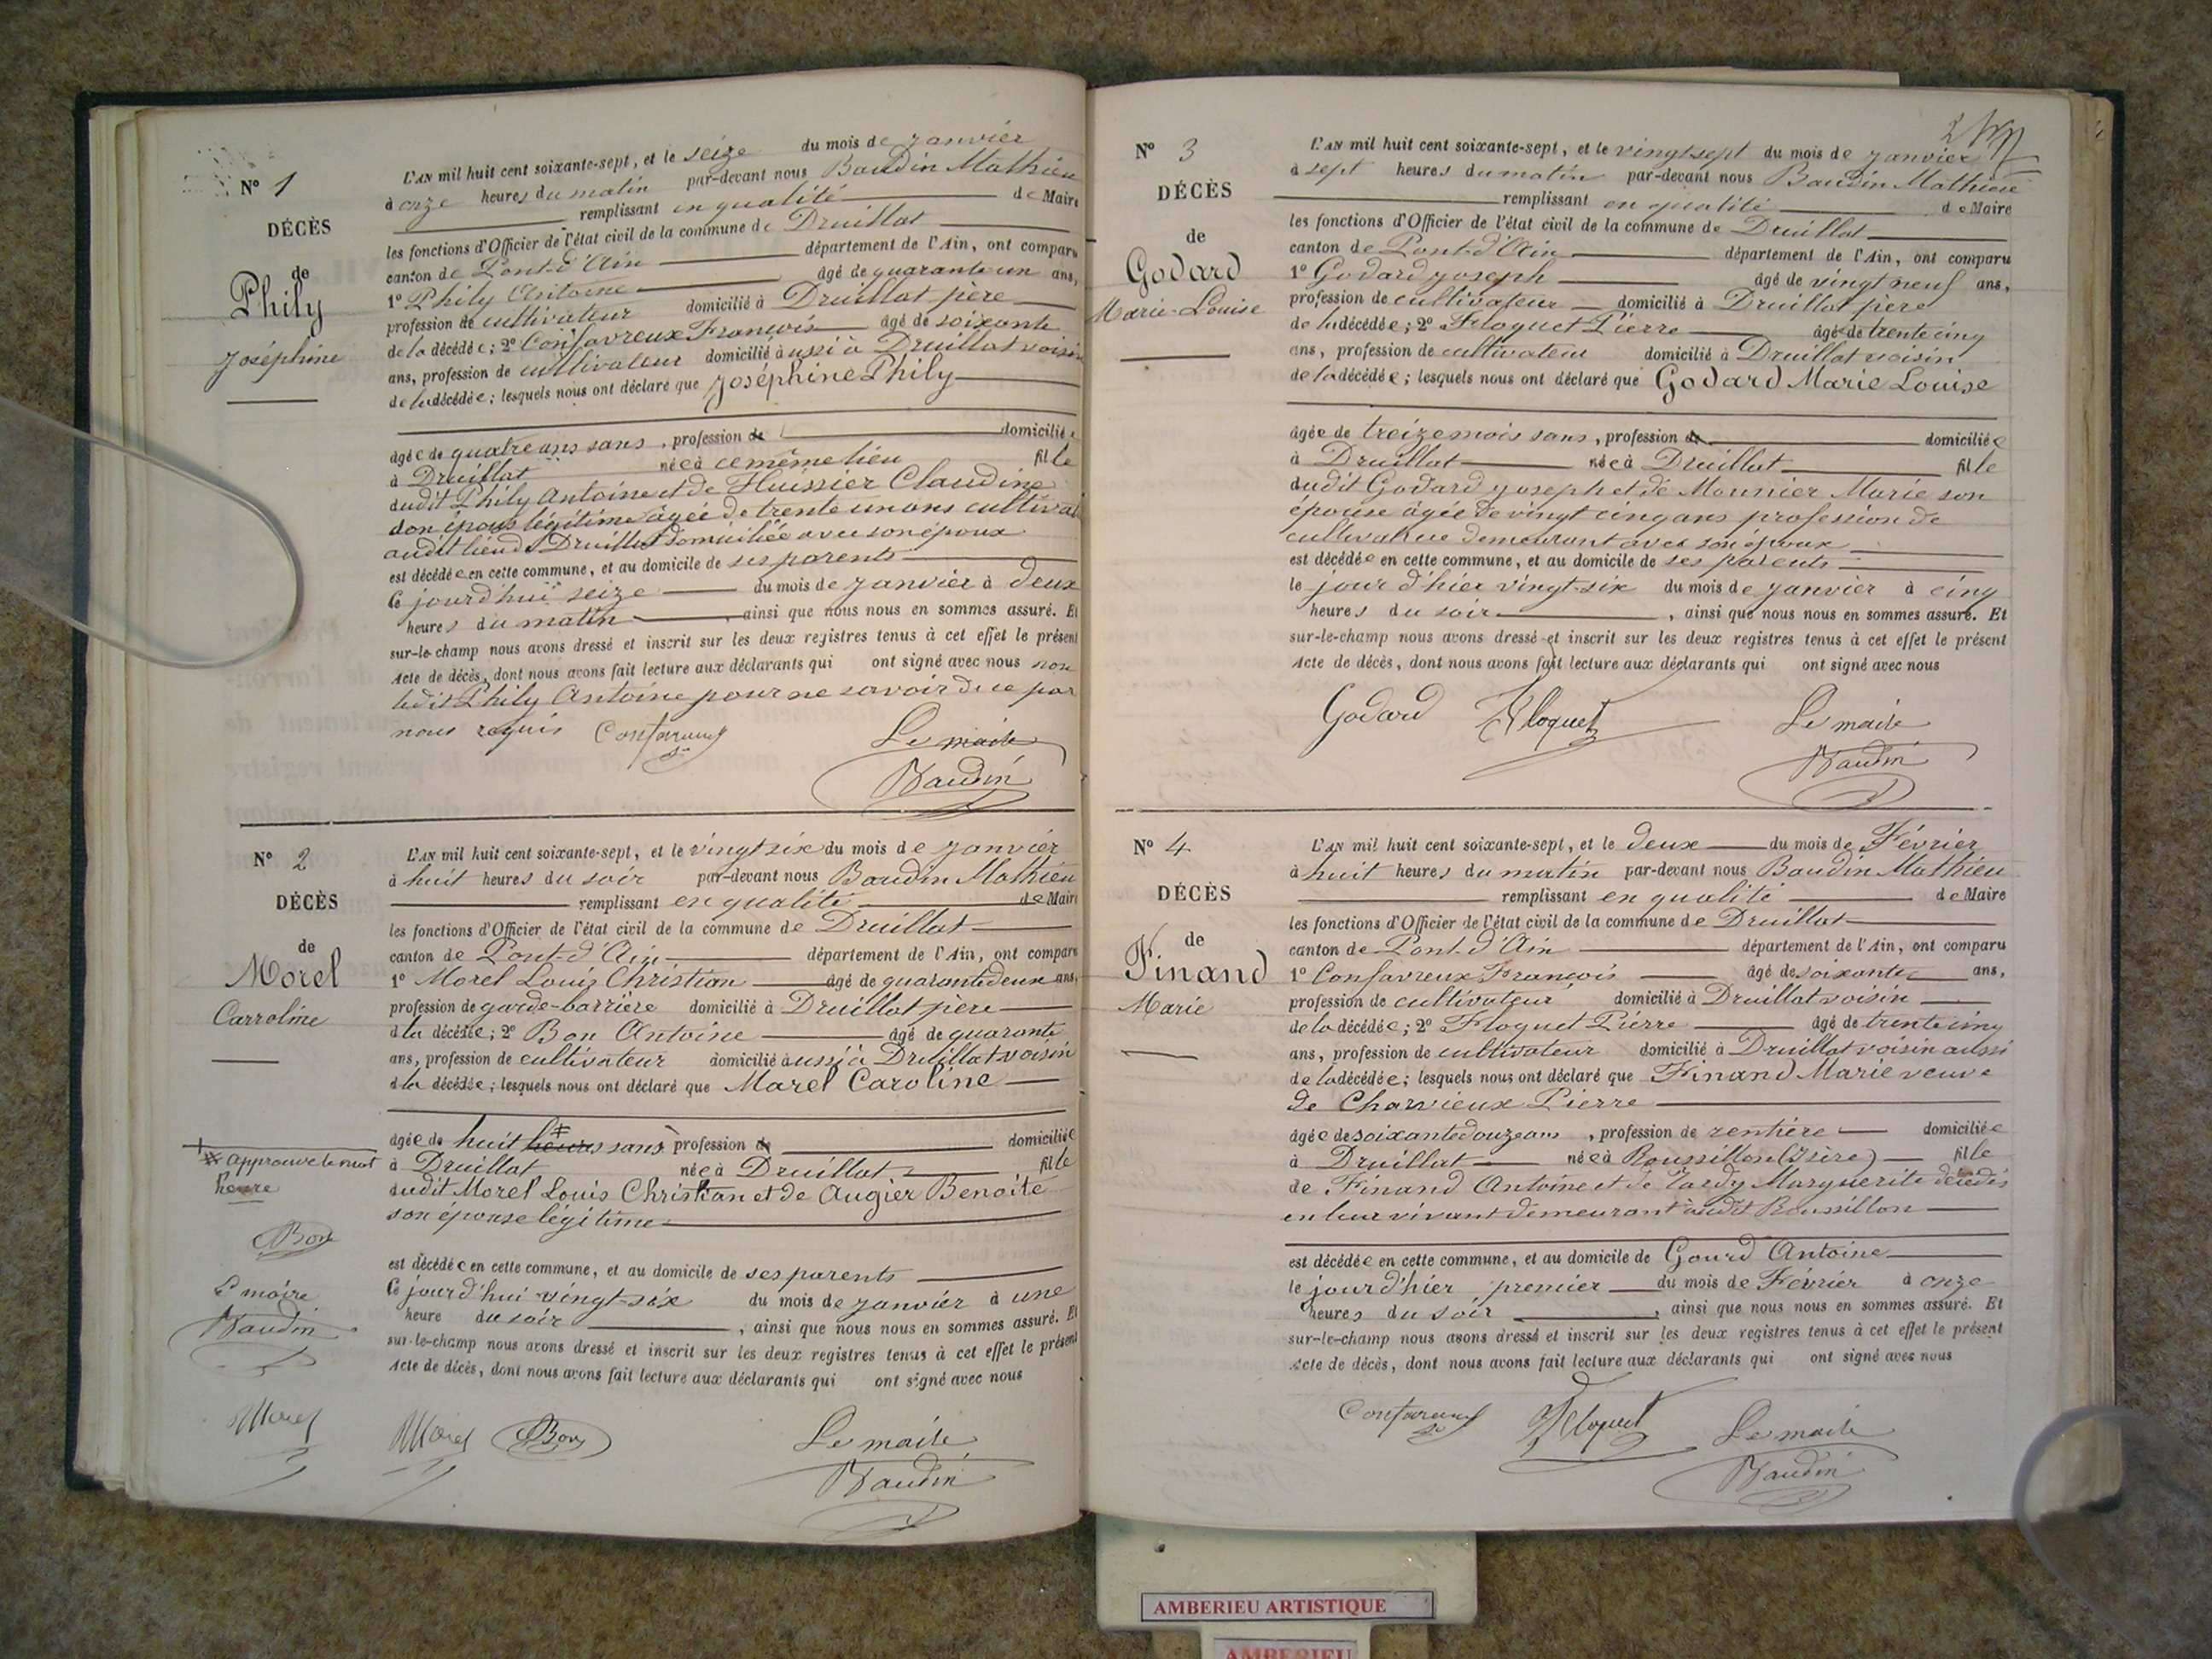 N° 1
DÉCÈS
de
Phily
Joséphine
L'AN mil huit cent soixante-sept, et le seize du mois de janvier
à onze heures du matin par-devant nous Baudin Mathieu
remplissant en qualité de Maire
les fonctions d'Officier de l'état civil de la commune de Druillat
canton de Pont-d'Ain département de l'Ain, ont comparu
1° Phily Antoine âgé de quarante un ans,
profession de cultivateur domicilié à Druillat père
de la décédée; 2° Confavreux François âgé de soixante
ans, profession de cultivateur domicilié aussi à Druillat voisin
de la décédée; lesquels nous ont déclaré que Joséphine Phily
âgée de quatre ans sans, profession de domiciliée
à Druillat née à ce même lieu fille
dudit Phily Antoine et de Huissier Claudine
son épouse légitime âgée de trente un ans cultivat
audit lieu de Druillat domiciliée avec son époux
est décédée en cette commune, et au domicile de ses parents
Ce jourd'hui seize du mois de janvier à deux
heures du matin, ainsi que nous nous en sommes assuré. Et
sur-le-champ nous avons dressé et inscrit sur les deux registres tenus à cet effet le présent
Acte de décès, dont nous avons fait lecture aux déclarants qui ont signé avec nous non
ledit Phily Antoine pour ne savoir de ce par
nous requis Confavreux
Le maire
Baudin
N° 2
DÉCÈS
de
Morel
Carroline
L'AN mil huit cent soixante-sept, et le vingt six du mois de janvier
à huit heures du soir par-devant nous Baudin Mathieu
remplissant en qualité de Maire
les fonctions d'Officier de l'état civil de la commune de Druillat
canton de Pont-d'Ain département de l'Ain, ont comparu
1° Morel Louis Christian âgé de quarante deux ans,
profession de garde-barrière domicilié à Druillat père
d la décédée; 2° Bon Antoine âgé de quarante
ans, profession de cultivateur domicilié aussi à Druillat voisin
d la décédée; lesquels nous ont déclaré que Marel Caroline
âgée de huit heures sans profession de domiciliée
à Druillat née à Druillat fille
dudit Morel Louis Christian et de Augier Benoite
son épouse légitime
est décédée en cette commune, et au domicile de ses parents
Ce jourd'hui vingt-six du mois de janvier à une
heure du soir, ainsi que nous nous en sommes assuré. Et
sur-le-champ nous avons dressé et inscrit sur les deux registres tenus à cet effet le présent
Acte de décès, dont nous avons fait lecture aux déclarants qui ont signé avec nous
approuve le mot
heure
Bon
Le maire
Baudin
Morel
Morel Bon Le maire
Baudin
N° 3
DÉCÈS
de
Godard
Marie-Louise
L'AN mil huit cent soixante-sept, et le vingt sept du mois de janvier
à sept heures du matin par-devant nous Baudin Mathieu
remplissant en qualité de Maire
les fonctions d'Officier de l'état civil de la commune de Druillat
canton de Pont-d'Ain département de l'Ain, ont comparu
1° Godard joseph âgé de vingt neuf ans,
profession de cultivateur domicilié à Druillat père
de la décédée; 2° Floquet Pierre âgé de trente cinq
ans, profession de cultivateur domicilié à Druillat voisin
de la décédée; lesquels nous ont déclaré que Godard Marie Louise
âgée de treize mois sans, profession de domiciliée
à Druillat née à Druillat fille
dudit Godard joseph et de Monnier Marie son
épouse âgée de vingt cinq ans profession de
cultivatrice demeurant avec son époux
est décédée en cette commune, et au domicile de ses parents
le jour d'hier vingt-six du mois de janvier à cinq
heures du soir, ainsi que nous nous en sommes assuré. Et
sur-le-champ nous avons dressé et inscrit sur les deux registres tenus à cet effet le présent
Acte de décès, dont nous avons fait lecture aux déclarants qui ont signé avec nous
Godard Floquet Le maire
Baudin
N° 4
DÉCÈS
de
Finand
Marie
L'AN mil huit cent soixante-sept, et le deux du mois de Février
à huit heures du matin par-devant nous Baudin Mathieu
remplissant en qualité de Maire
les fonctions d'Officier de l'état civil de la commune de Druillat
canton de Pont-d'Ain département de l'Ain, ont comparu
1° Confavreux François âgé de soixante ans,
profession de cultivateur domicilié à Druillat voisin
de la décédée; 2° Floquet Pierre âgé de trente cinq
ans, profession de cultivateur domicilié à Druillat voisin aussi
de la décédée; lesquels nous ont déclaré que Finand Marie veuve
de Charvieux Pierre
âgée de soixante douze ans, profession de rentière domiciliée
à Druillat née à Roussillon (Isère) fille
de Finand Antoine et de Tardy Marguerite décédés
en leur vivant demeurant audit Roussillon
est décédée en cette commune, et au domicile de Gourd Antoine
le jour d'hier premier du mois de Février à onze
heures du soir, ainsi que nous nous en sommes assuré. Et
sur-le-champ nous avons dressé et inscrit sur les deux registres tenus à cet effet le présent
Acte de décès, dont nous avons fait lecture aux déclarants qui ont signé avec nous
Confavreux Floquet Le maire
Baudin
AMBERIEU ARTISTIQUE
AMBERIEU